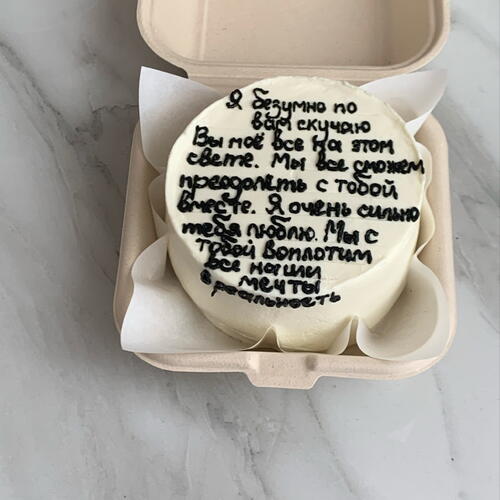 Я безумно по
вам скучаю
Вы моё все на этом
свете. Мы все сможем
преодолеть с тобой
вместе. Я очень сильно
тебя люблю. Мы с
тобой воплотим
все наши
мечты
в реальность